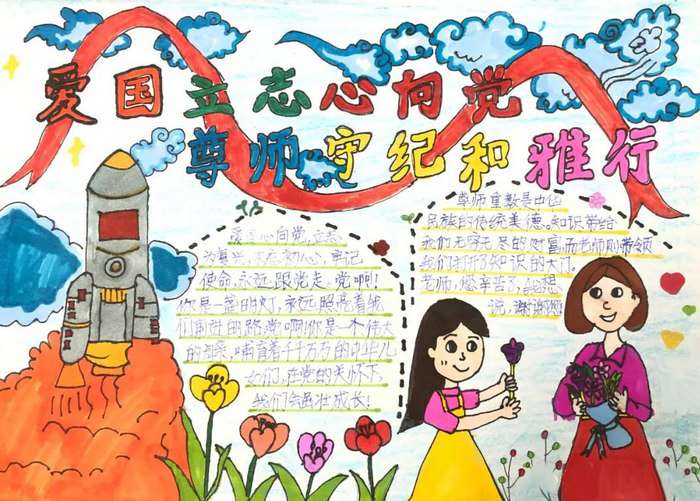 爱国立志心向党
尊师守纪和雅行
爱国心向党,立志
为复兴,不忘初心,牢记
使命,永远跟党走。党啊!
你是一盏明灯,永远照亮着我
们前进的路,党啊!你是一个伟大
的母亲,哺育着千千万万的中华儿
女们,在党的关怀下
我们会茁壮成长!
尊师重教是中
民族的传统美德,知识带给
我们无穷无尽的财富,而老师则带领
我们打开了知识的大门。
老师,您辛苦了,我想
说,谢谢您!